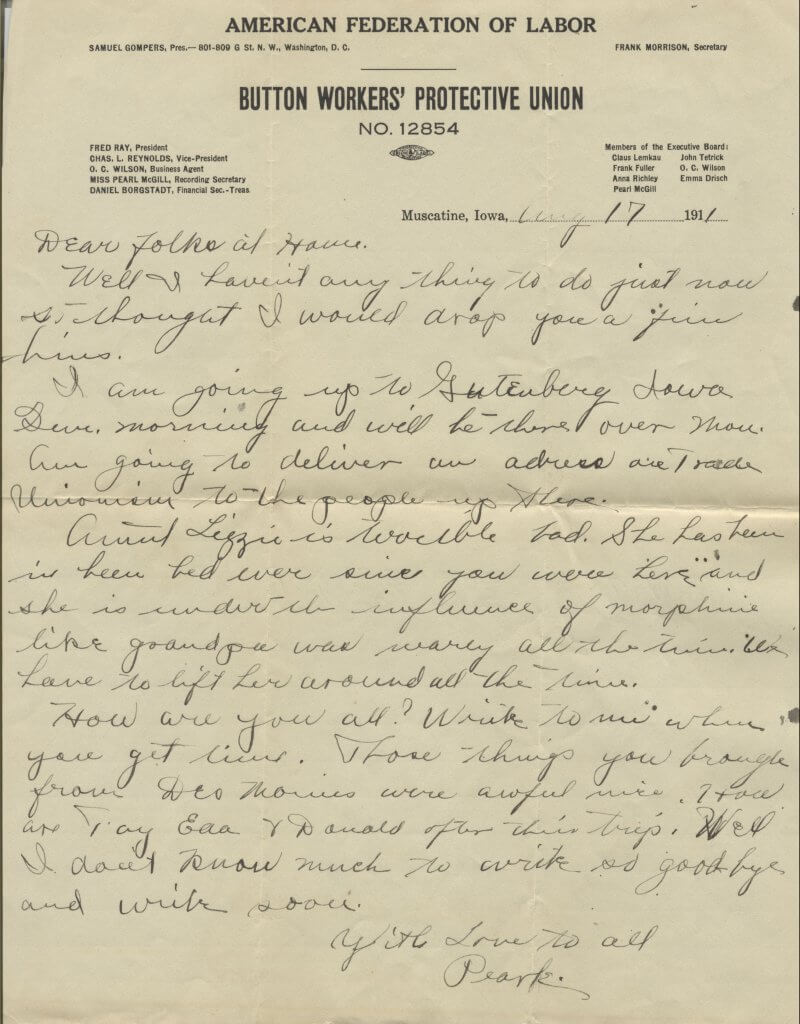 AMERICAN FEDERATION OF LABOR
SAMUEL GOMPERS, Pres.— 801-809 G St. N. W., Washington, D. C.
FRANK MORRISON, Secretary
BUTTON WORKERS' PROTECTIVE UNION
NO. 12854
FRED RAY, President
CHAS. L. REYNOLDS, Vice-President
O. C. WILSON, Business Agent
MISS PEARL McGILL, Recording Secretary
DANIEL BORGSTADT, Financial Sec.-Treas
Members of the Executive Board:
Claus Lemkau John Tetrick
Frank Fuller O. C. Wilson
Anna Richley Emma Drisch
Pearl McGill
Muscatine, Iowa, Aug 17 1911
Dear folks at Home.
Well I havent any thing to do just now
so thought I would drop you a few
lines.
I am going up to Gutenberg Iowa
Sun. morning and will be there over Mon.
Am going to deliver an adress on Trade
Unionism to the people up there.
Aunt Lizzie is terrible bad. She has been
in been bed ever since you were here and
she is under the influence of morphine
like grandpa was nearly all the time. We
have to lift her around all the time.
How are you all? Write to me when
you get time. Those things you brough
from Des Moines were awful nice. How
are Tay Eda & Donald after their trip. Well
I don't know much to write so goodbye
and write soon.
With Love to all
Pearl.